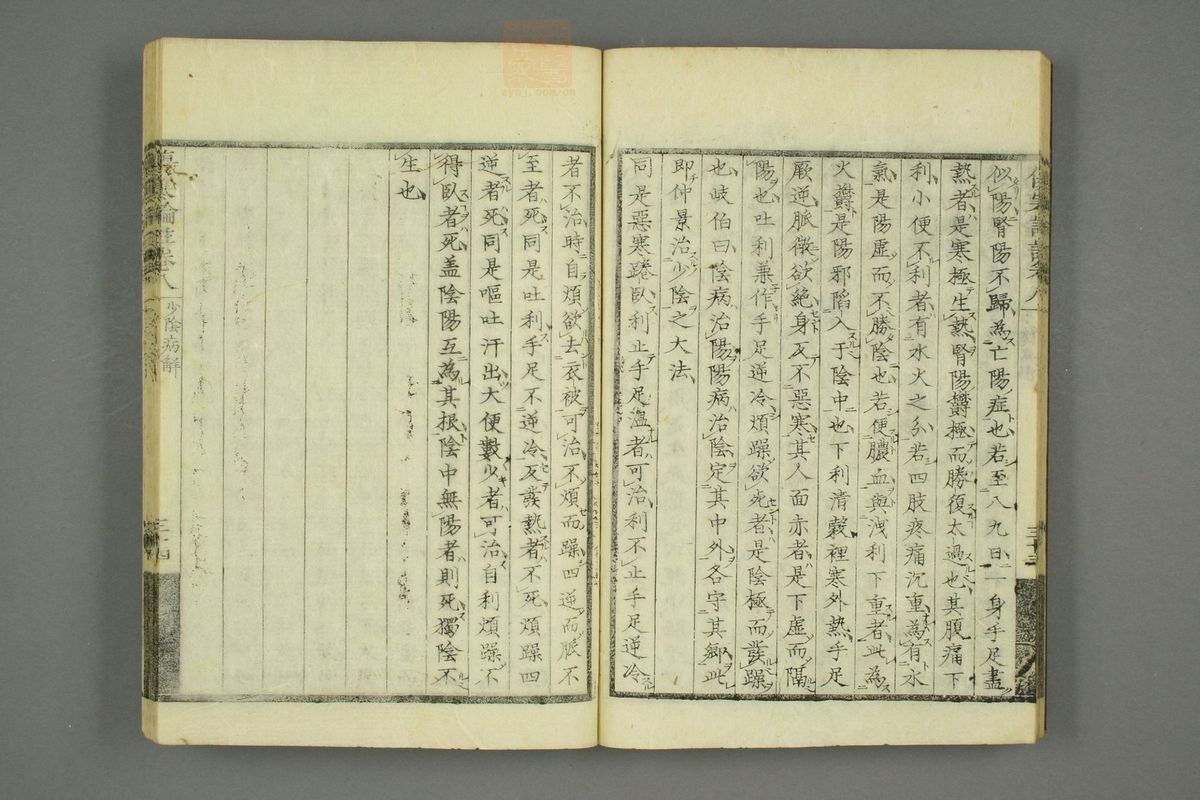 似陽腎陽不歸為亡陽症也若至八九日一身手足盡
熱者是寒極生熱腎陽鬱極而勝復太過也其腹痛下
利小便不利者有水火之分若四肢疼痛沉重為有水
氣是陽虛而不勝陰也若便膿血與洩利下重者此為
火鬱是陽邪陷入于陰中也下利清穀裡寒外熱手足
厥逆脈微欲絕身反不惡寒其人面赤者是下虛而隔
陽也吐利兼作手足逆冷煩躁欲死者是陰極而發躁
也岐伯曰陰病治陽陽病治陰定其中外各守其鄉此
即仲景治少陰之大法
同是惡寒踡臥利止手足溫者可治利不止手足逆冷
三十三
者不治時自煩欲去衣被可治不煩而躁四逆而脈不
至者死同是吐利手足不逆冷反發熱者不死煩躁四
逆者死同是嘔吐汗出大便數少者可治自利煩躁不
得臥者死盖陰陽互為其根陰中無陽者則死獨陰不
生也
少陰病解
zysj.com.cn